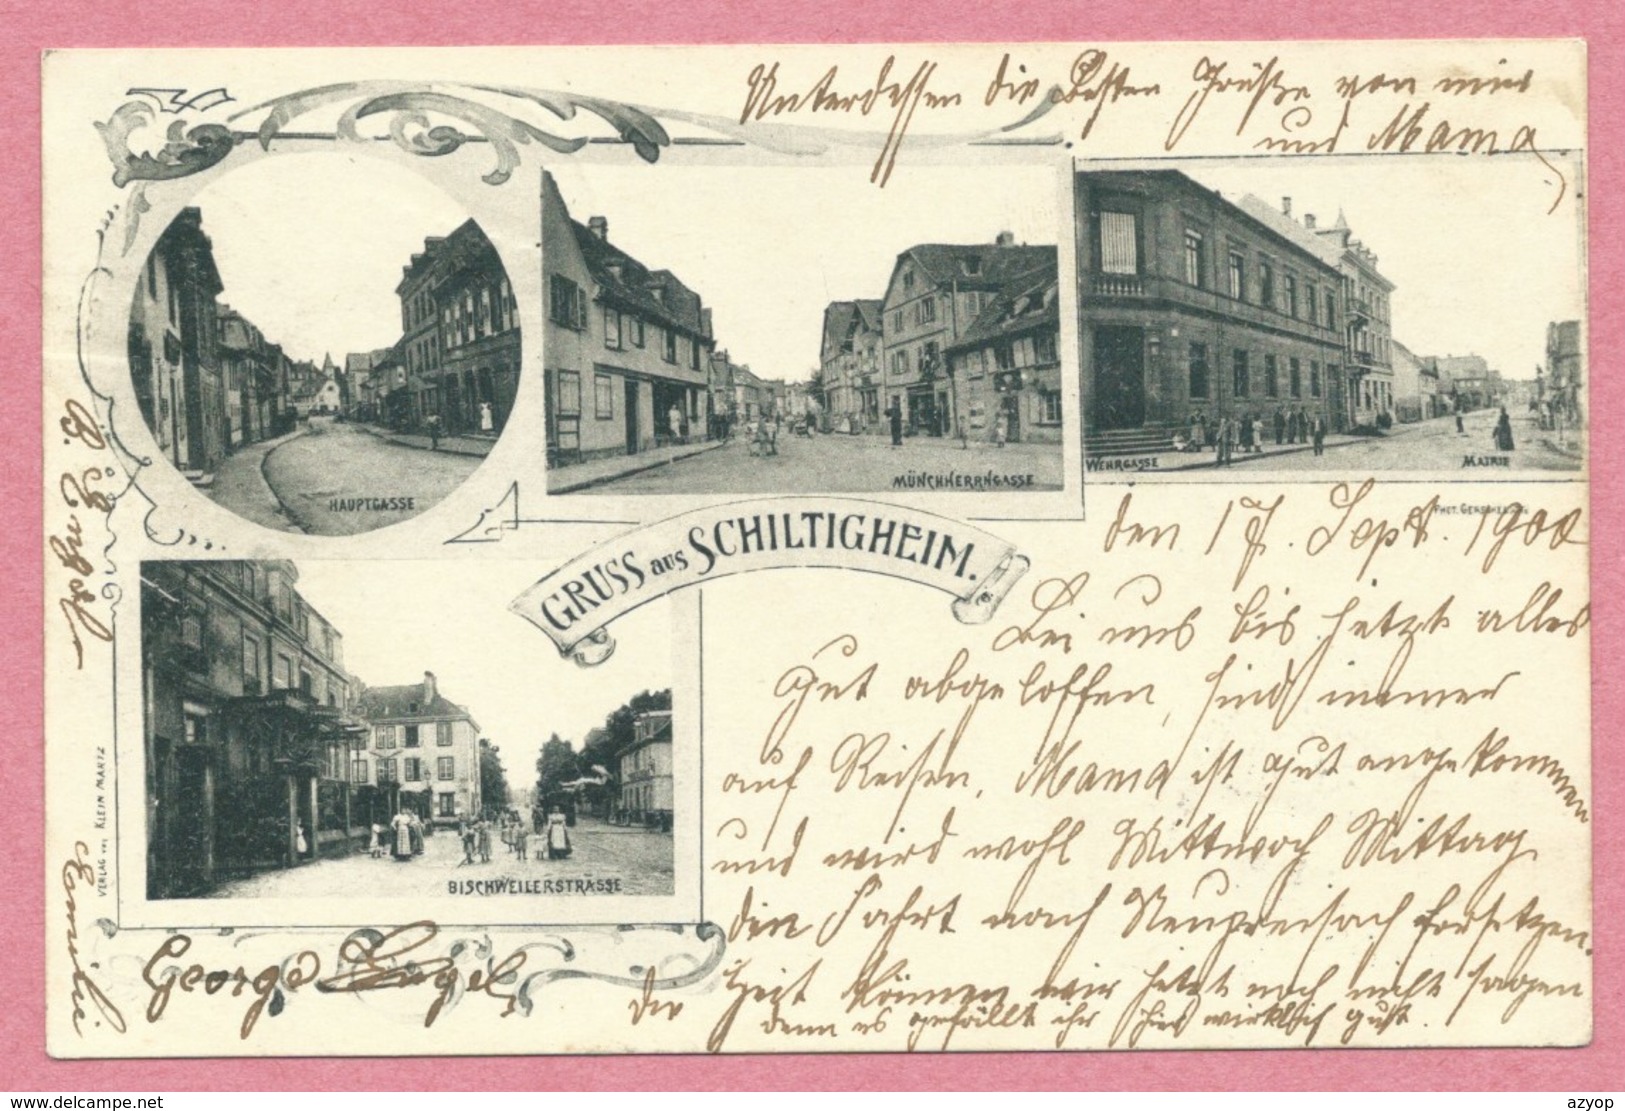 Unterdessen die Besten Grüße von mir
und Mama
HAUPTGASSE
MÜNCHHERRNGASSE
WEHRGASSE
MAIRIE
PHOT.
GRUSS aus SCHILTIGHEIM.
BISCHWEILERSTRASSE
VERLAG von KLEIN MARTZ
den 17. Sept. 1900
Bei uns bis jetzt alles
gut abgeloffen, sind immer
auf Reisen, Mama ist gut angekommen
und wird wohl Mittwoch Mittag
die Fahrt nach Neubreisach fortsetzen.
Die Zeit können wir jetzt noch nicht sagen
denn es gefällt ihr hier wirklich gut.
George Engel
B. Engel
Emilie
delcampe.net
azyop